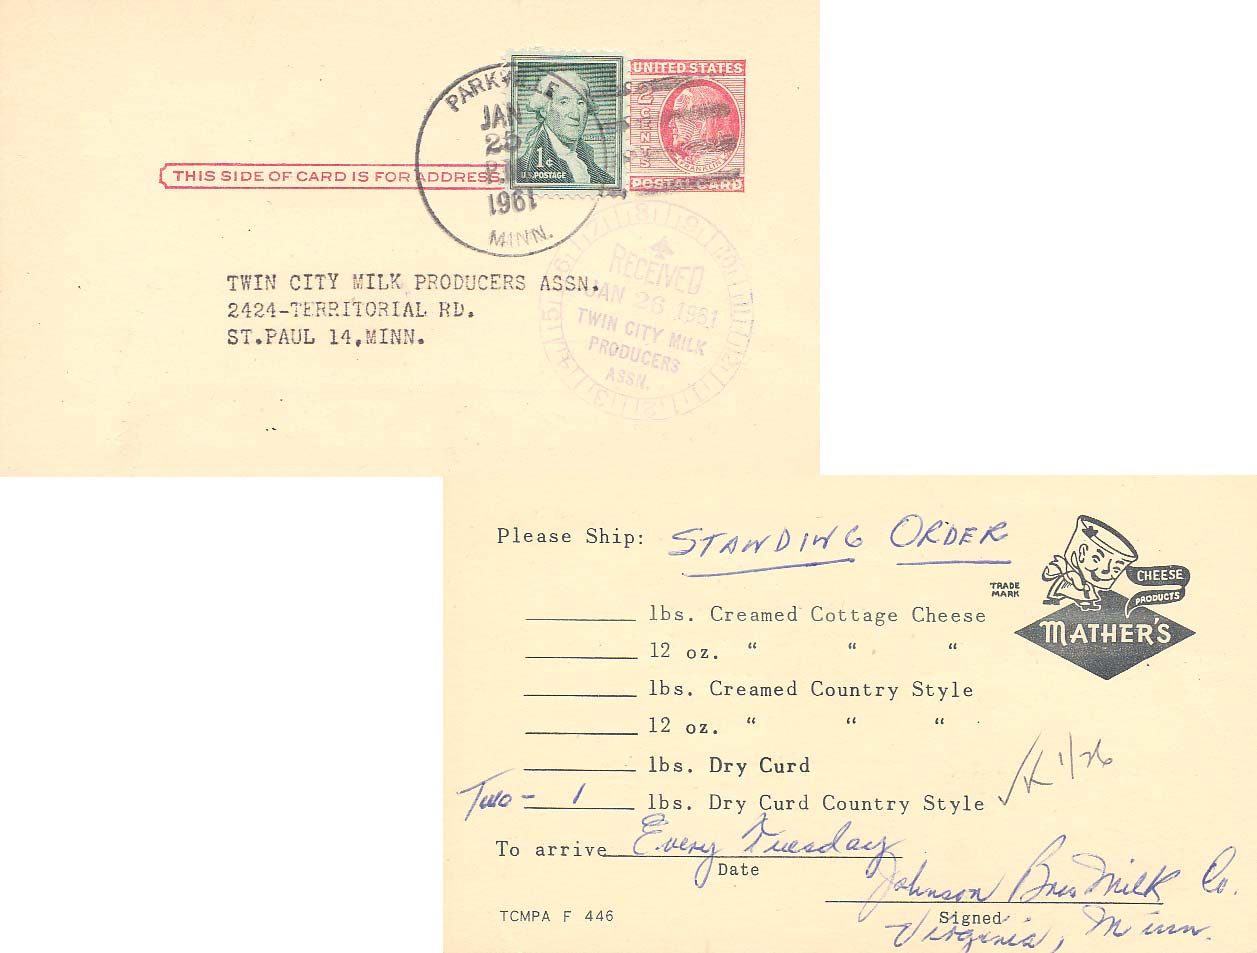 PARKVILLE
JAN
25
1961
MINN.
1¢
U.S. POSTAGE
UNITED STATES
2 CENTS
FRANKLIN
POSTAL CARD
THIS SIDE OF CARD IS FOR ADDRESS
TWIN CITY MILK PRODUCERS ASSN.
2424-TERRITORIAL RD.
ST.PAUL 14,MINN.
RECEIVED
JAN 26 1961
TWIN CITY MILK
PRODUCERS
ASSN.
Please Ship: STANDING ORDER
TRADE
MARK
CHEESE
PRODUCTS
MATHER'S
lbs. Creamed Cottage Cheese
12 oz. “ “ “
lbs. Creamed Country Style
12 oz. “ “ “
lbs. Dry Curd
Two - 1 lbs. Dry Curd Country Style ✓ K 1/26
To arrive Every Tuesday
Date
Johnson Bros Milk Co.
Signed
Virginia, Minn.
TCMPA F 446